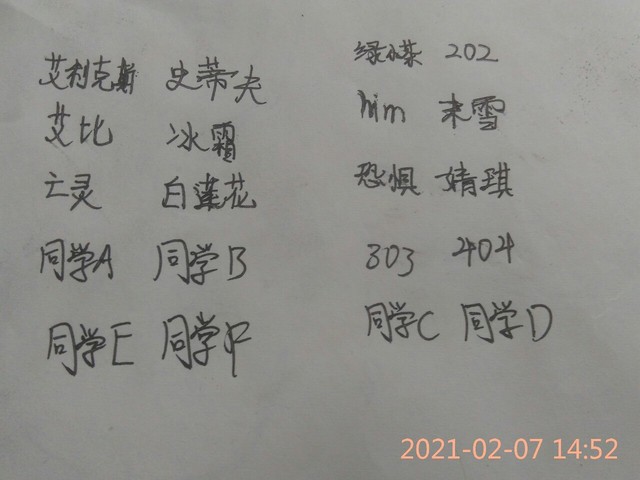 艾利克斯 史蒂夫 绿茶 202
艾比 冰霜 him 末雪
亡灵 白莲花 恐惧 婧琪
同学A 同学B 303 404
同学E 同学F 同学C 同学D
2021-02-07 14:52